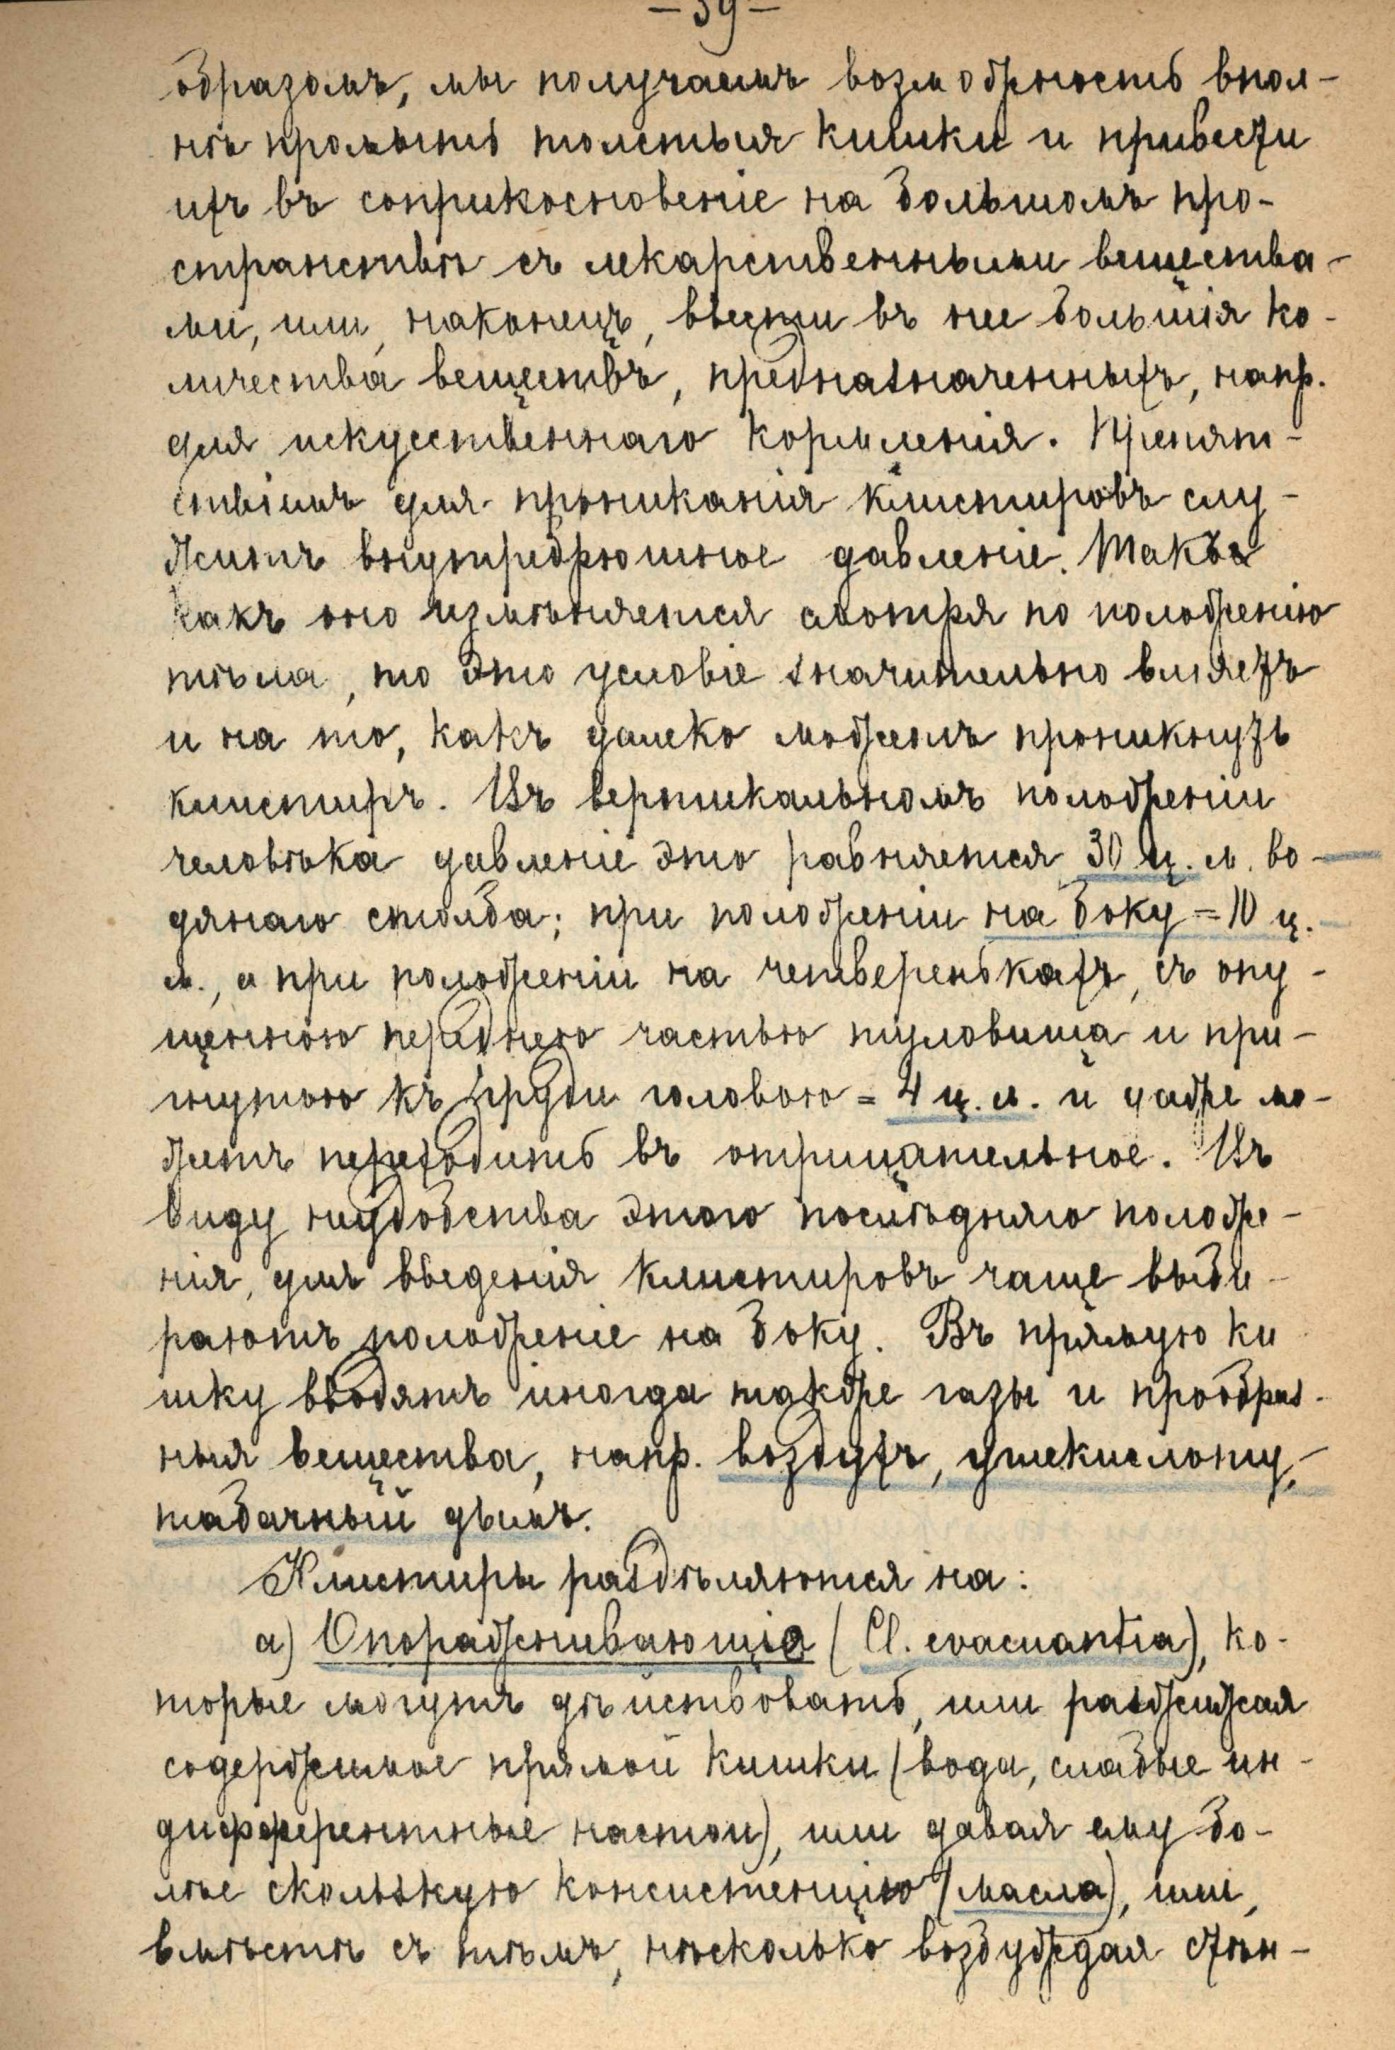 — 39 —
образомъ, мы получаемъ возможность впол-
нѣ промыть толстыя кишки и привести
ихъ въ соприкосновеніе на большомъ про-
странствѣ съ лекарственными вещества-
ми, или, наконецъ, ввести въ нее большія ко-
личества веществъ, предназначенныхъ, напр.
для искусственнаго кормленія. Препят-
ствіемъ для прониканія клистировъ слу-
житъ внутрибрюшное давленіе. Такъ
какъ оно измѣняется смотря по положенію
тѣла, то это условіе значительно вліяетъ
и на то, какъ далеко можетъ проникнуть
клистиръ. Въ вертикальномъ положеніи
человѣка давленіе это равняется 30 ц. м. во-
дянаго столба; при положеніи на боку = 10 ц.
м., а при положеніи на четверенькахъ, съ опу-
щенною переднею частью туловища и при-
гнутою къ груди головою = 4 ц. м. и даже мо-
жетъ переходить въ отрицательное. Въ
виду неудобства этого послѣдняго положе-
нія, для введенія клистировъ чаще выби-
раютъ положеніе на боку. Въ прямую ки
шку вводятъ иногда также газы и прообраз-
ныя вещества, напр. воздухъ, углекислоту,
табачный дымъ.
Клистиры раздѣляются на:
а) Опоражнивающіе (Cl. evacuantia), ко-
торые могутъ дѣйствовать, или разжижая
содержимое прямой кишки (вода, слабые ин-
дифферентные настои), или давая ему бо-
лѣе скользкую консистенцію (масла), или,
вмѣстѣ съ тѣмъ, нѣсколько возбуждая стѣн-